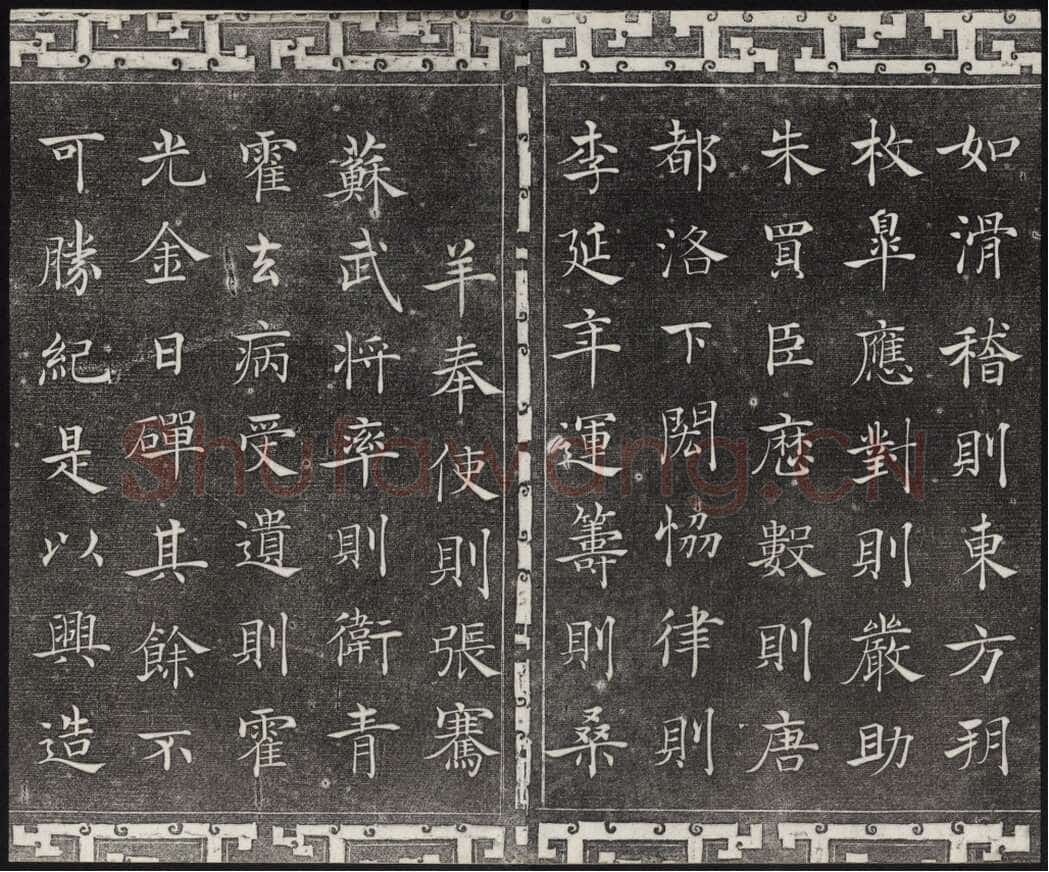 如滑稽則東方朔
枚皐應對則嚴助
朱買臣歷數則唐
都洛下閎恊律則
李延年運籌則桑
羊奉使則張騫
蘇武將率則衛青
霍去病受遺則霍
光金日磾其餘不
可勝紀是以興造
Shufawang.CN